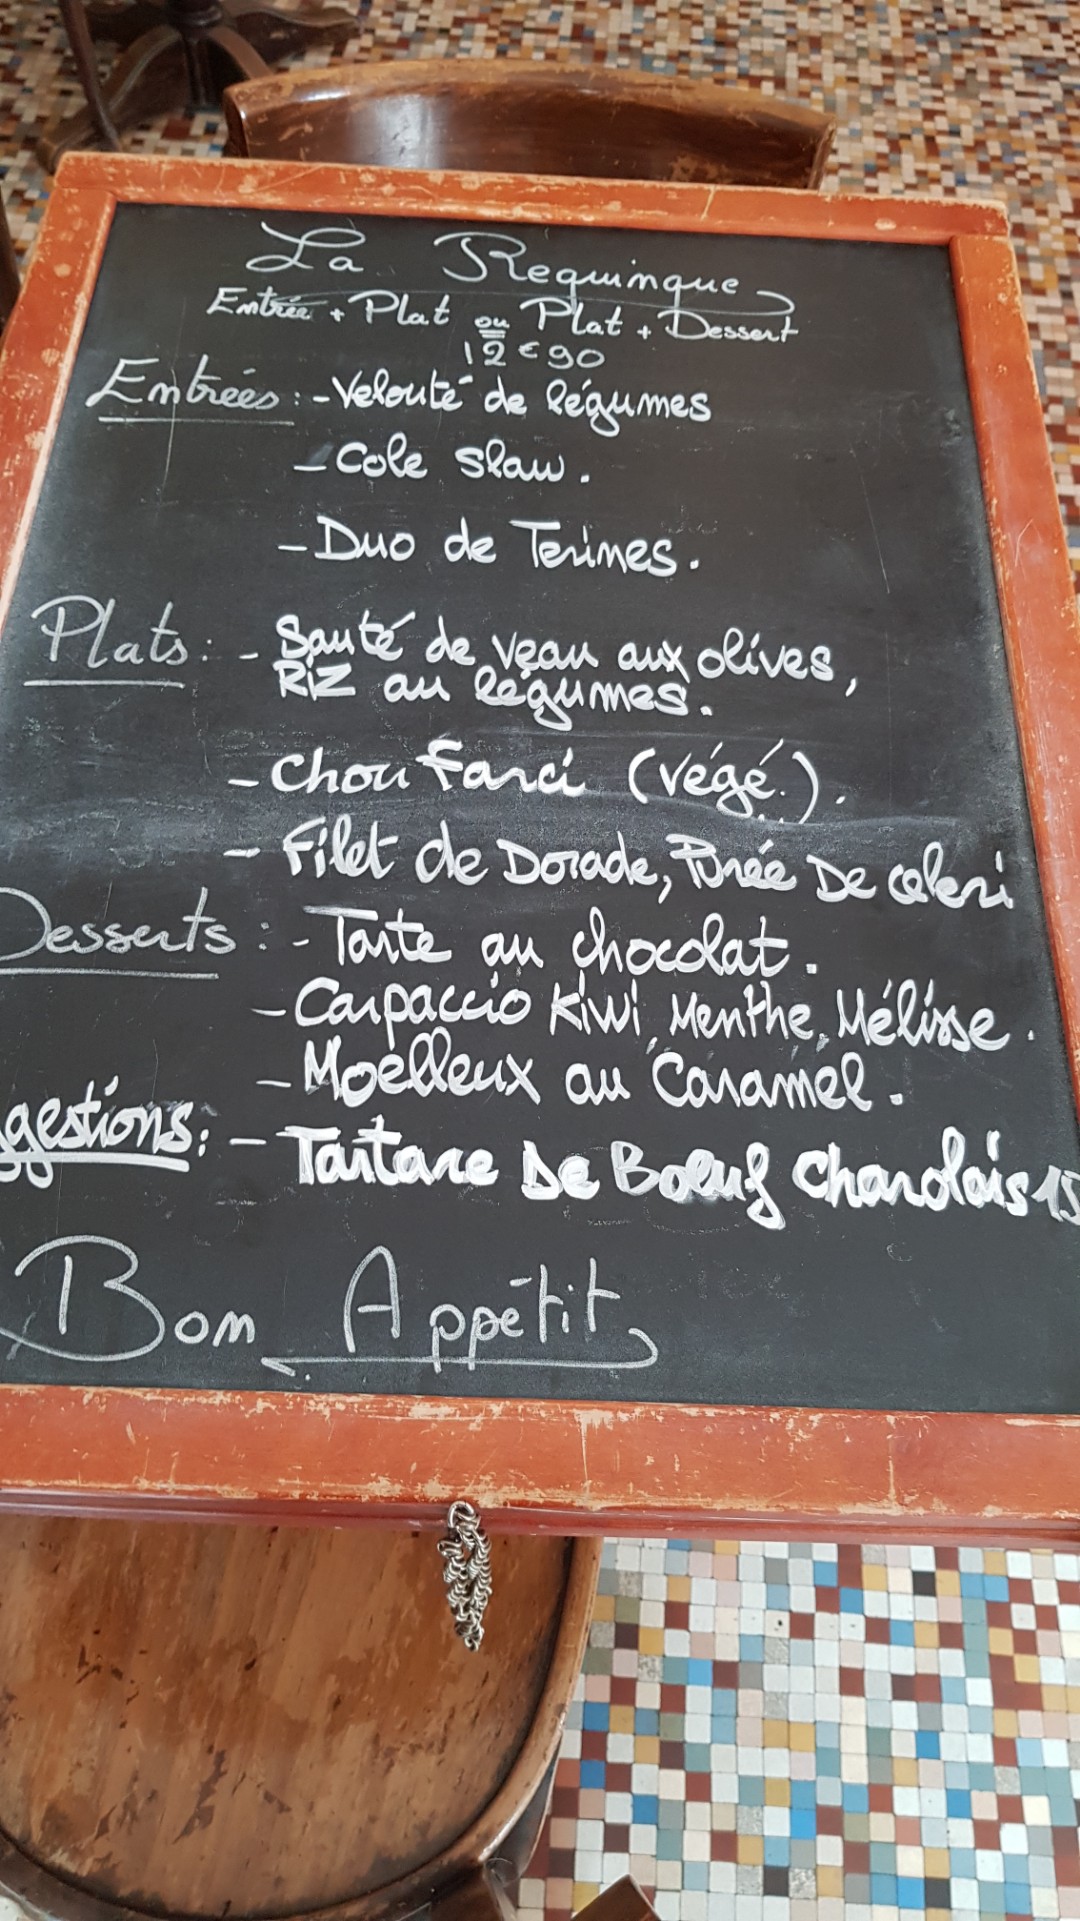 La Requinque
Entrée + Plat ou Plat + Dessert
12€90
Entrées : - Velouté de légumes
- Cole slaw.
- Duo de Terines.
Plats : - Sauté de veau aux olives,
RIZ au légumes.
- Chou Farci (végé.).
- Filet de Dorade, Purée De celeri
Desserts : - Tarte au chocolat.
- Carpaccio Kiwi, Menthe, Mélisse.
- Moëlleux au Caramel.
ggestions : - Tartare De Bœuf Charolais 15
Bon Appétit